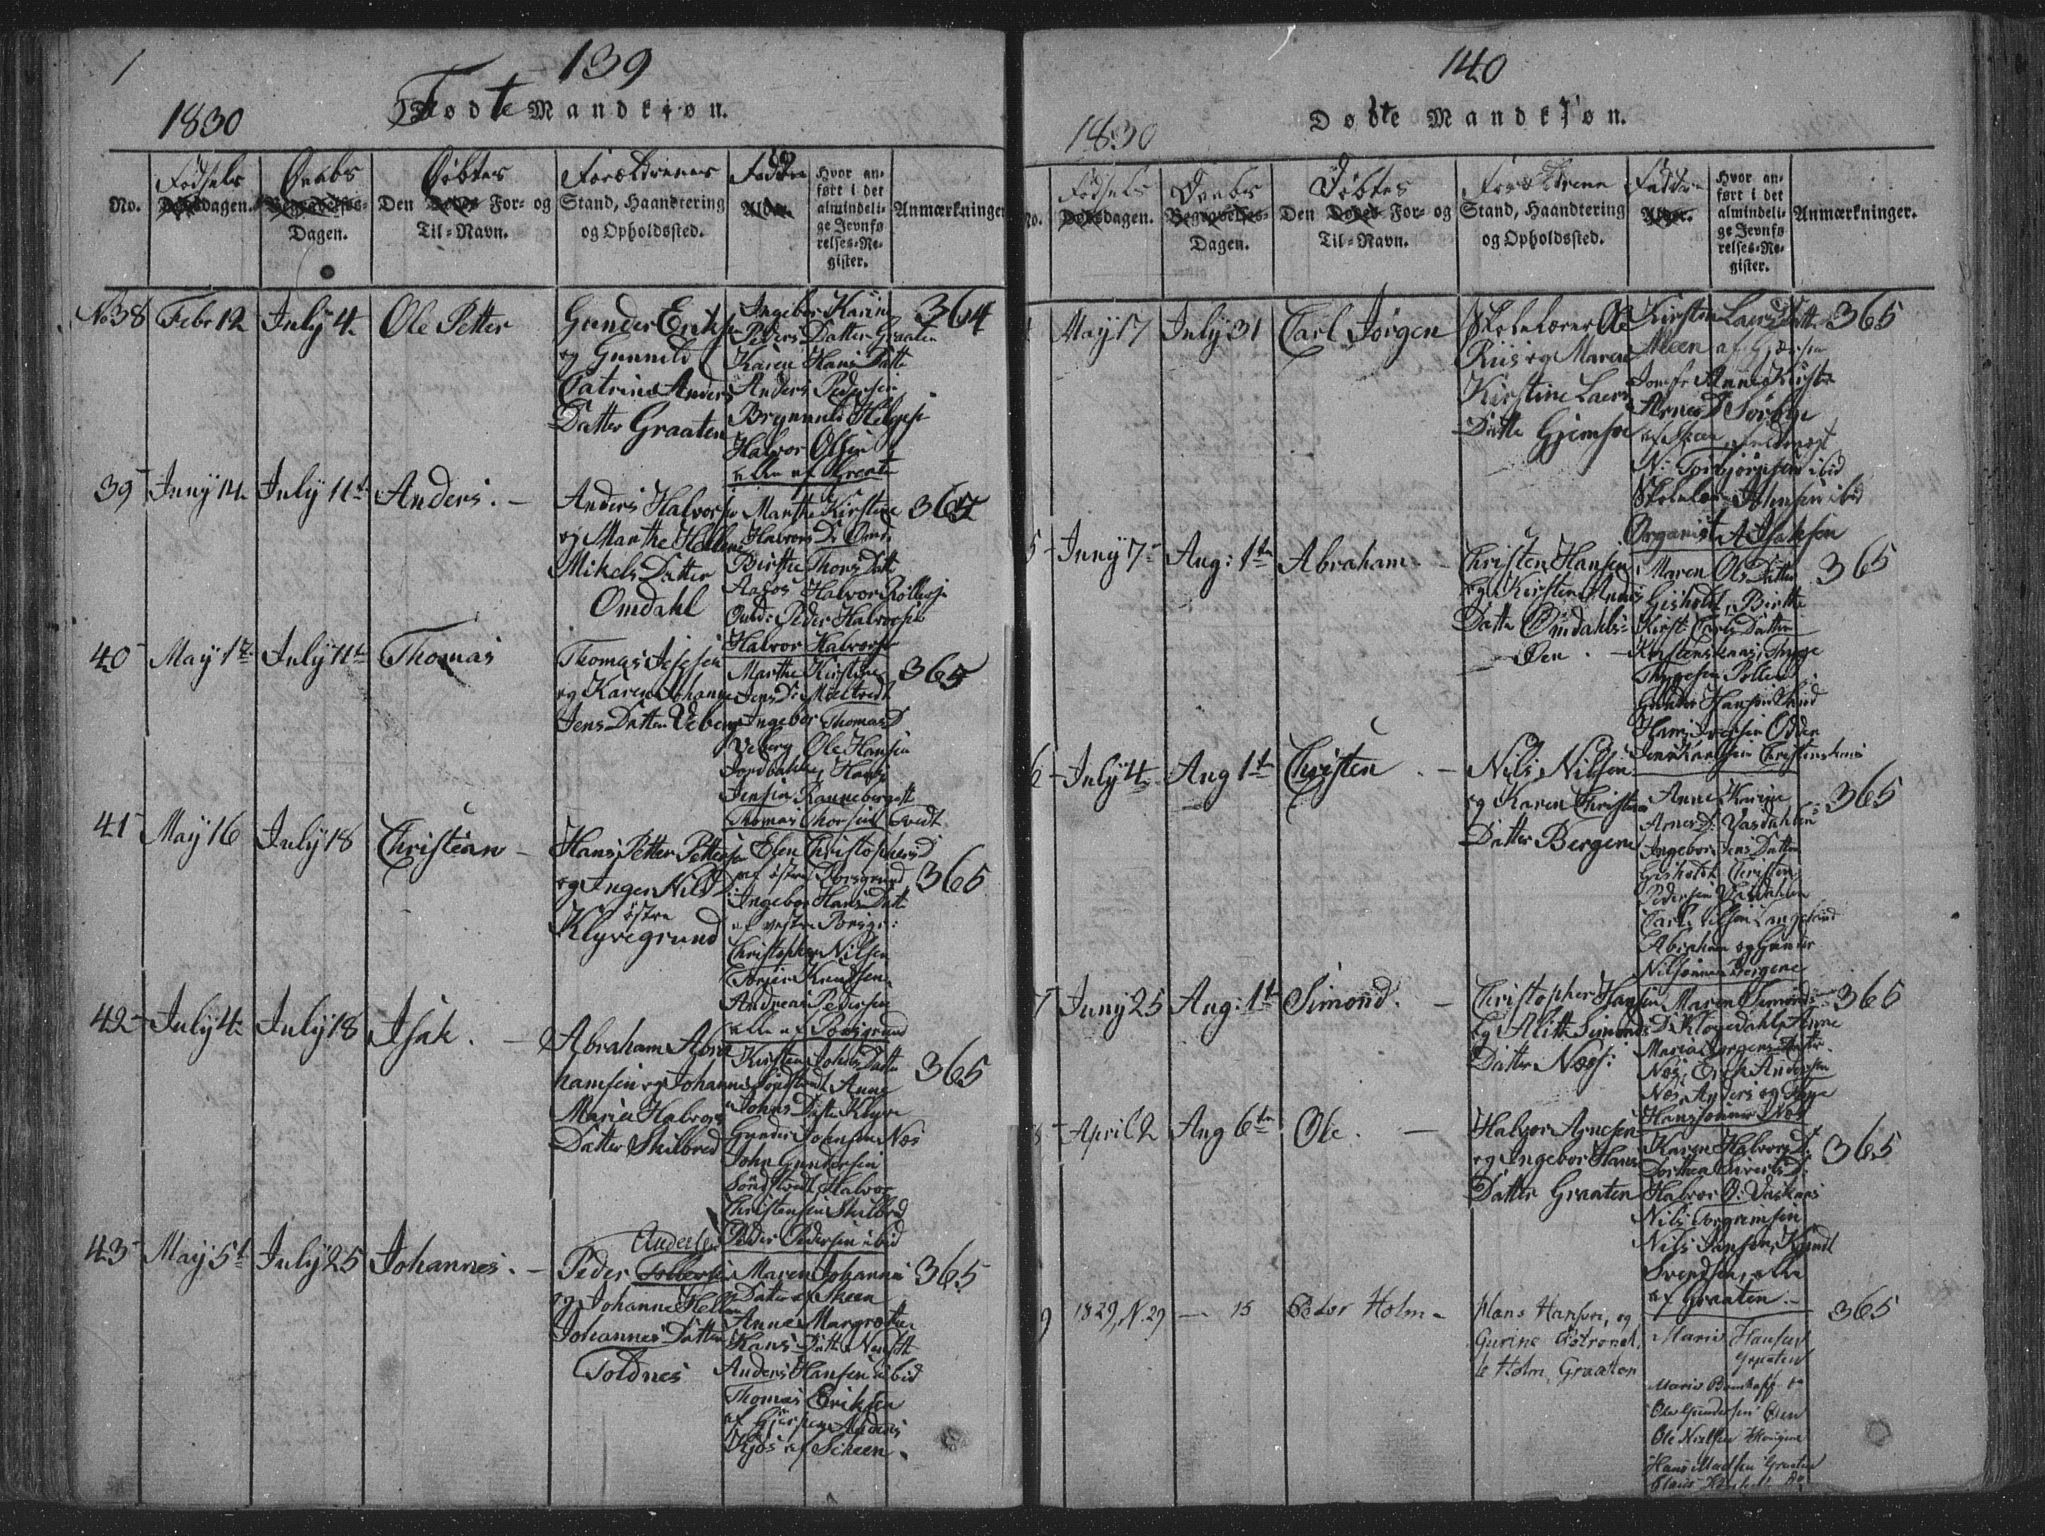 1
139
Fødte Mandkjøn.
1830
No.
Fødsels
Dødsdagen.
Daabs
Begravelses-
Dagen.
Døbtes
Den Dødes For- og
Til-Navn.
Forældrenes
Stand, Haandtering
og Opholdssted.
Fadder
Alder.
Hvor an-
ført i det
almindeli-
ge Jevnfø
relses-Re-
gister.
Anmærkninger
No 38 Febr 12 July 4 Ole Petter
Gunder Eriks
og Gunneld
Catrine Anders
Datter Graaten
Ingebor Karin
Peders Datter Graaten
Karen Hans Datte
Anders Pedersen
Halvor Olsen
alle af Graate
364
39 Juny 14 July 11t Anders. -
Anders Halvorse
og Marthe Hellene
Mikels Datter
Omdahl
Marthe Kirstine
Halvors D: Omd.
Birthe Thors Datt
Aafos Halvor
Omd: Peder Halvorsen
Halvor Halvorse
365
40 May 1t July 11t Thomas
Thomas Jesesen
og Karen Johanne
Jens Datter Veberg
Marthe Kirstine
Jens D: Moeltvedt
Ingebor Thomas D
Veberg Ole Hansen
Jordbakke, Hans
Jensen Ranneberg
Thomas Thorsen Tvedt
365
41 May 16 July 18 Christian -
Hans Petter Petterse
og Inger Nils D:
østre
Klyvegrund
Elen Christophers D
af østre Porsgrund
Ingebor Hans Datt
af vestre Porsgr:
Christopher Nilsen
Torjer Knudsen
Andreas Pedersen
alle af Porsgrund
365
42 July 4 July 18 Isak. -
Abraham Abra
hamsen og Johanne
Maria Halvors
Datter Skilbred
Kirsten Johns Datter
Sondstvedt Anne
Johns Datter Klyve
Gunder Johnsen Nos
John Gundersen
Sondstvedt Halvor
Christensen Skilbred
Peder Pedersen ibid
365
43 May 5t July 25 Johannes. -
Anderse
Peder Tollefsen
og Johanne Hellene
Johannes Datter
Toldnes
Maren Johannes
Datter af Skeen
Anne Margrethe
Hans Datte
Anders Hansen ibid
Thomas Eriksen
af Gjerpen Anders
Kjøs af Scheen.
365
140
Dødte Mandkjøn.
1830
No.
Fødsels
Dødsdagen.
Daabs
Begravelses-
Dagen.
Døbtes
Den Dødes For- og
Til-Navn.
Forældrene
Stand, Haandtering
og Opholdssted.
Faddere
Alder.
Hvor an-
ført i det
almindeli-
ge Jevnfø
relses-Re-
gister.
Anmærkninger.
May 17 July 31 Carl Jørgen
Skolelærer Ole
Riis og Maren
Kirstine Laers
Datte Gjemsøe
Kirsten Laers Datt
Aleen af Gjemsøe
Jomfr Anne Kirst
Arnes D Sørbye
af Skeen
N: Torbjørnsen ibid
Skolelær Johnsen ibid
Organist A Isaksen
365
5 Juny 7 Aug: 1te Abraham -
Christen Hansen
og Kirsten Anders
Datte Omdahls-
Øen. -
Maren Ols Datter
Gisholt, Birthe
Kirst Carls Datter
Kirstensknas, Tryge
Trygesen Pollen
Gunder Hansen ibid
Hans Odden
Jens Karlsen Christensknas
365
6 July 4 Aug 1te Christen -
Nils Nilsen
og Karen Christens
Datter Bergene
Anne Karine
Arnes D: Vasdahlen
Ingebor Jens Datter
Gisholdt Christen
Pedersen Vasdahlen
Carl Nilsen Langesund
Abraham og Gunder
Nilssønner Bergene
365
7 Juny 25 Aug: 1t Simond. -
Christopher Hansen
og Alith Simonds
Datter Næs:
Maren Simonds
D: Klovedahl, Anne
Maria Jørgens Datte
Næs, Erik Andersen
Næs, Anders og
Hanssønner Næs
365
8 April 2 Aug 6te Ole. -
Halvor Arnesen
og Ingebor Hans
Datter Graaten
Karen Halvors D:
Dorthea Siverts D:
Halvor O:
Nils Torgrimsen
Nils Jansen, Knudt
Svendsen, alle
af Graaten. -
365
9 1829, N. 29 - 15 Peder Holm -
Hans Hansen, og
Gurine
Holm, Graaten
Maria Hansen
Graaten
Maria
Ole Gundersen Øen
Ole Nielsen
Hans Madsen Graaten
365